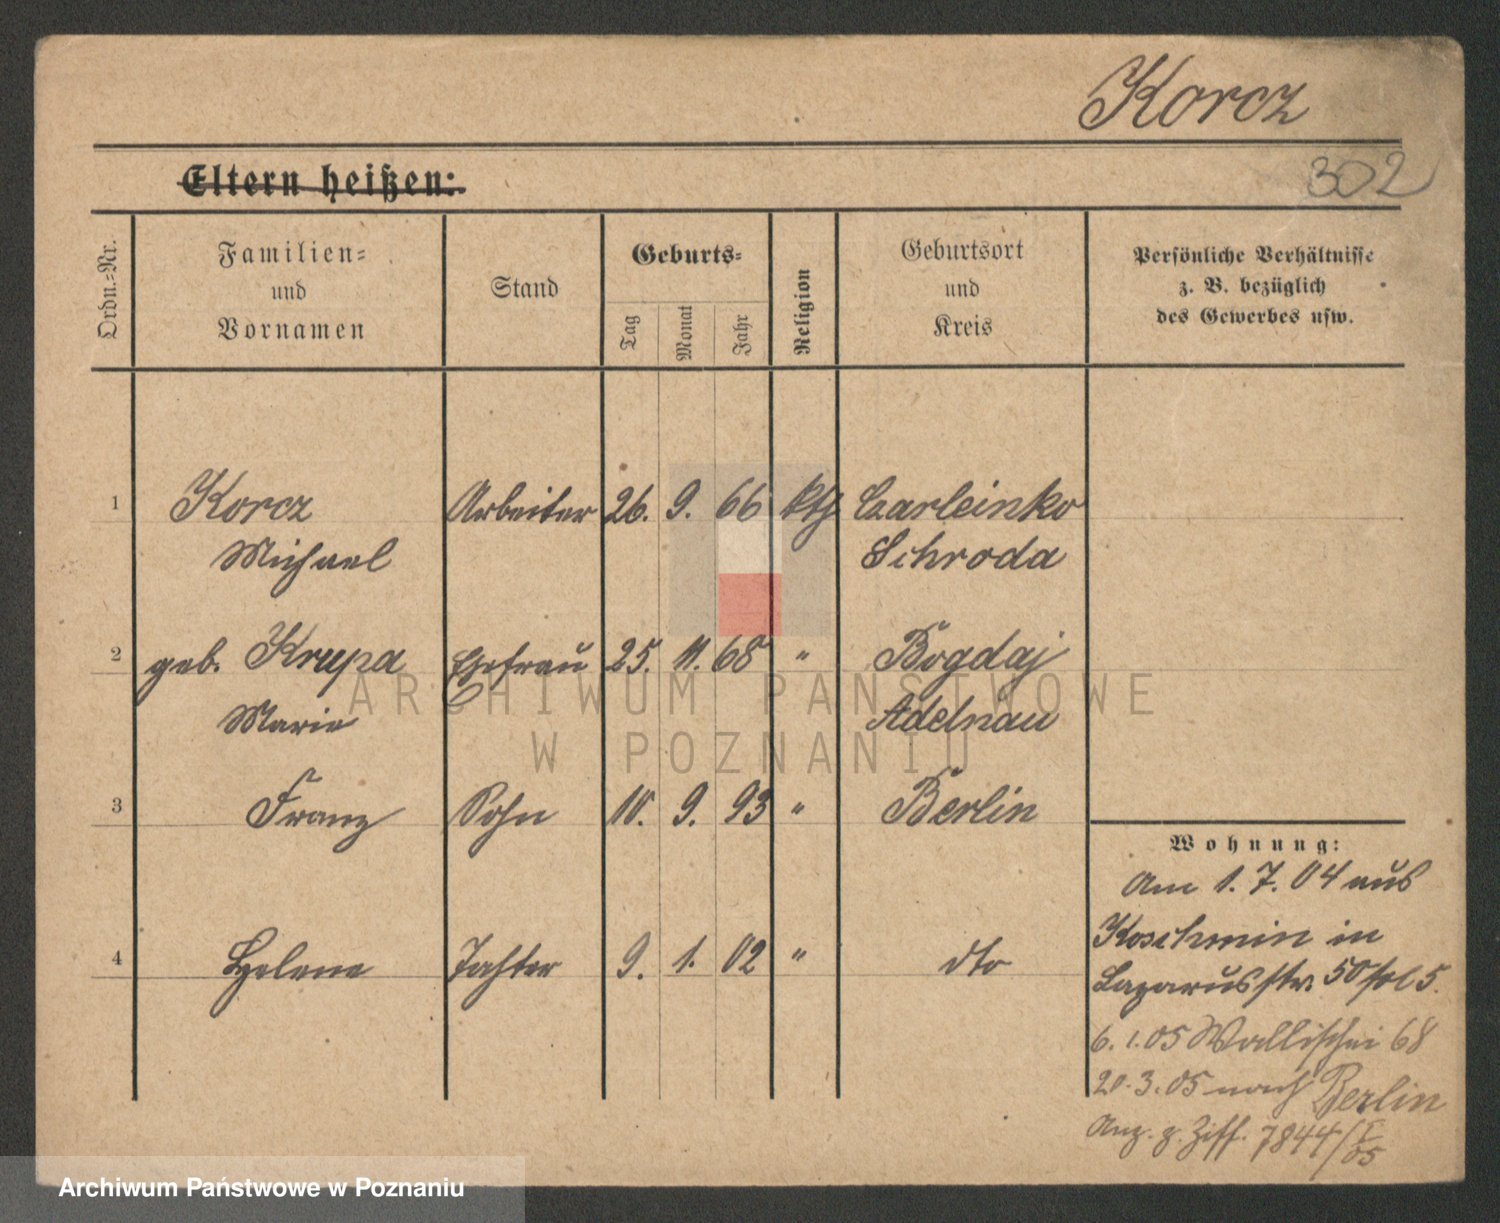 Korcz
302
Eltern heißen:
Ordn.=Nr.
Familien=
und
Vornamen
Stand
Geburts=
Tag
Monat
Jahr
Religion
Geburtsort
und
Kreis
Persönliche Verhältnisse
z. B. bezüglich
des Gewerbes usw.
1 Korcz Arbeiter 26. 9. 66 kth Czarleinko
Michael Schroda
2 geb. Krupa Ehefrau 25. 11. 68 " Bogdaj
Marie Adelnau
3 Franz Sohn 10. 9. 93 " Berlin
4 Helene Tochter 9. 1. 02 " dto
Wohnung:
Am 1. 7. 04 aus
Koschmin in
Lazarusstr. 50
6. 1. 05 Wallischei 68
20. 3. 05 nach Berlin
Anz. z. Ziff. 7844/I 05
ARCHIWUM PAŃSTWOWE
W POZNANIU
Archiwum Państwowe w Poznaniu